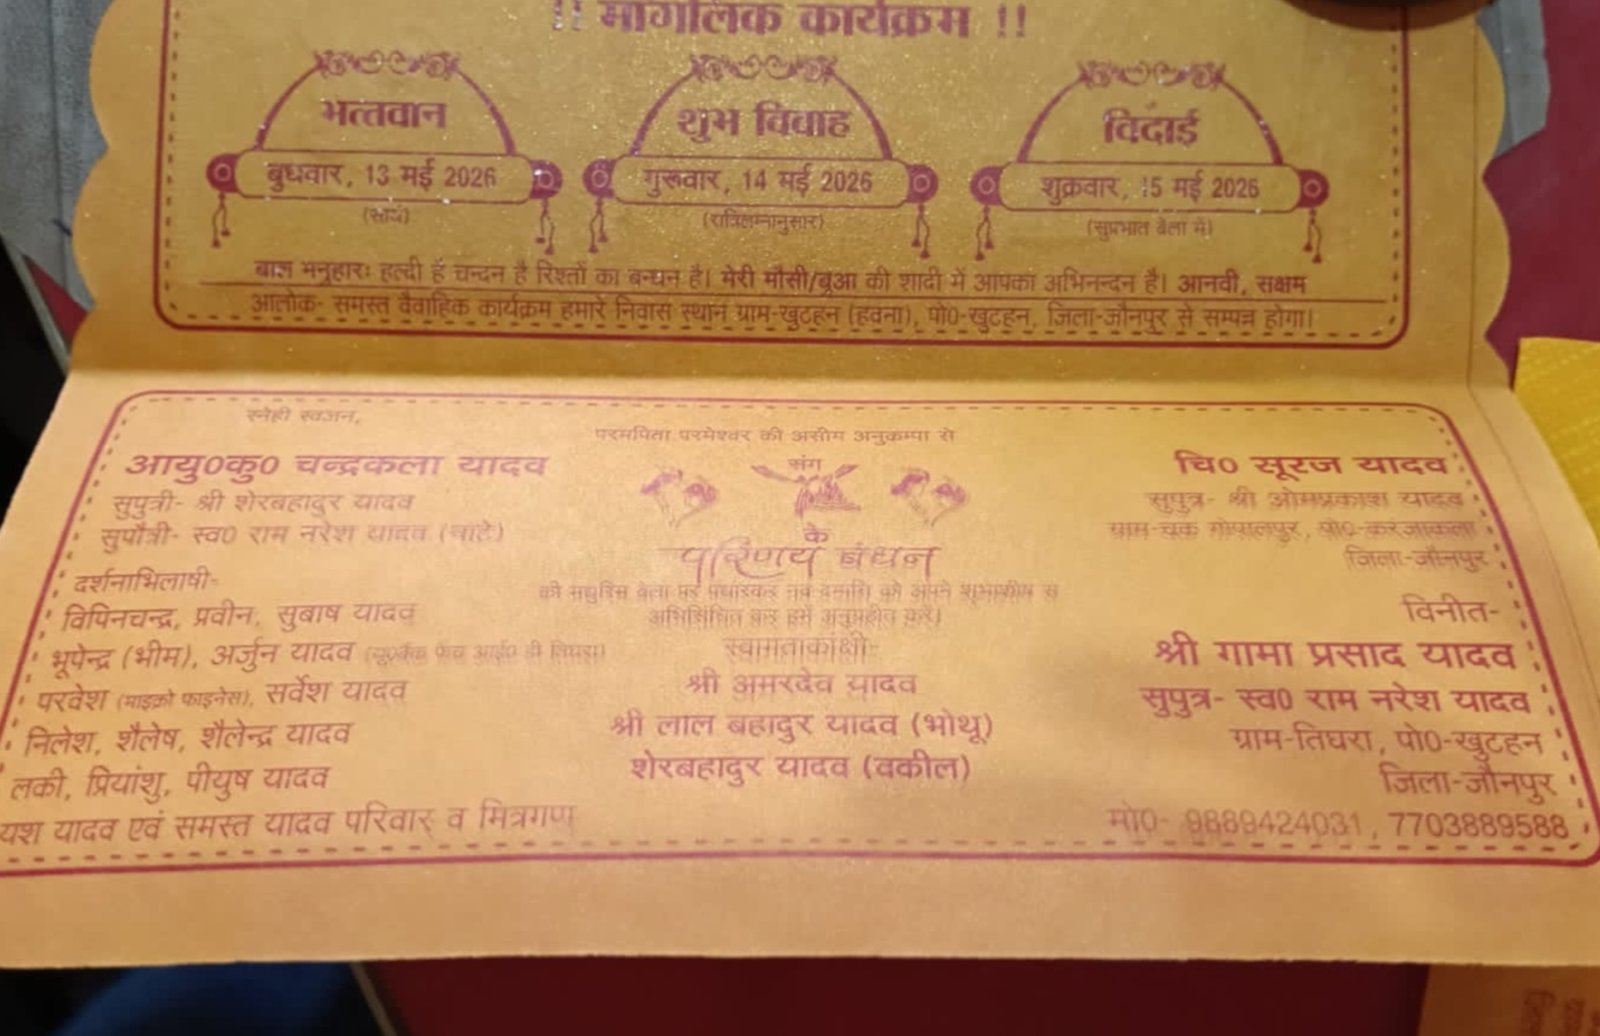 !! मांगलिक कार्यक्रम !!
भत्तवान
बुधवार, 13 मई 2026
(सायं)
शुभ विवाह
गुरूवार, 14 मई 2026
(रात्रिलग्नानुसार)
विदाई
शुक्रवार, 15 मई 2026
(सुप्रभात बेला में)
बाल मनुहारः हल्दी है चन्दन है रिश्तों का बन्धन है। मेरी मौसी/बुआ की शादी में आपका अभिनन्दन है। आनवी, सक्षम
आलोक- समस्त वैवाहिक कार्यक्रम हमारे निवास स्थान ग्राम-खुटहन (हवना), पो0-खुटहन, जिला-जौनपुर से सम्पन्न होगा।
स्नेही स्वजन,
परमपिता परमेश्वर की असीम अनुकम्पा से
आयु0कु0 चन्द्रकला यादव
सुपुत्री- श्री शेरबहादुर यादव
सुपौत्री- स्व0 राम नरेश यादव
संग
चि0 सूरज यादव
सुपुत्र- श्री ओमप्रकाश यादव
ग्राम-चक गोपालपुर, पो0-करंजाकला
जिला-जौनपुर
के
परिणय बंधन
की मधुरिम बेला पर पधारकर नव दम्पत्ति को अपने शुभाशीष से
अभिसिंचित कर हमें अनुग्रहीत करें।
दर्शनाभिलाषी-
विपिनचन्द्र, प्रवीन, सुबाष यादव
भूपेन्द्र (भीम), अर्जुन यादव
परवेश (माइक्रो फाइनेंस), सर्वेश यादव
निलेश, शैलेष, शैलेन्द्र यादव
लकी, प्रियांशु, पीयुष यादव
यश यादव एवं समस्त यादव परिवार व मित्रगण
स्वागताकांक्षी-
श्री अमरदेव यादव
श्री लाल बहादुर यादव (भोथू)
शेरबहादुर यादव (वकील)
विनीत-
श्री गामा प्रसाद यादव
सुपुत्र- स्व0 राम नरेश यादव
ग्राम-तिघरा, पो0-खुटहन
जिला-जौनपुर
मो0- 9889424031, 7703889588